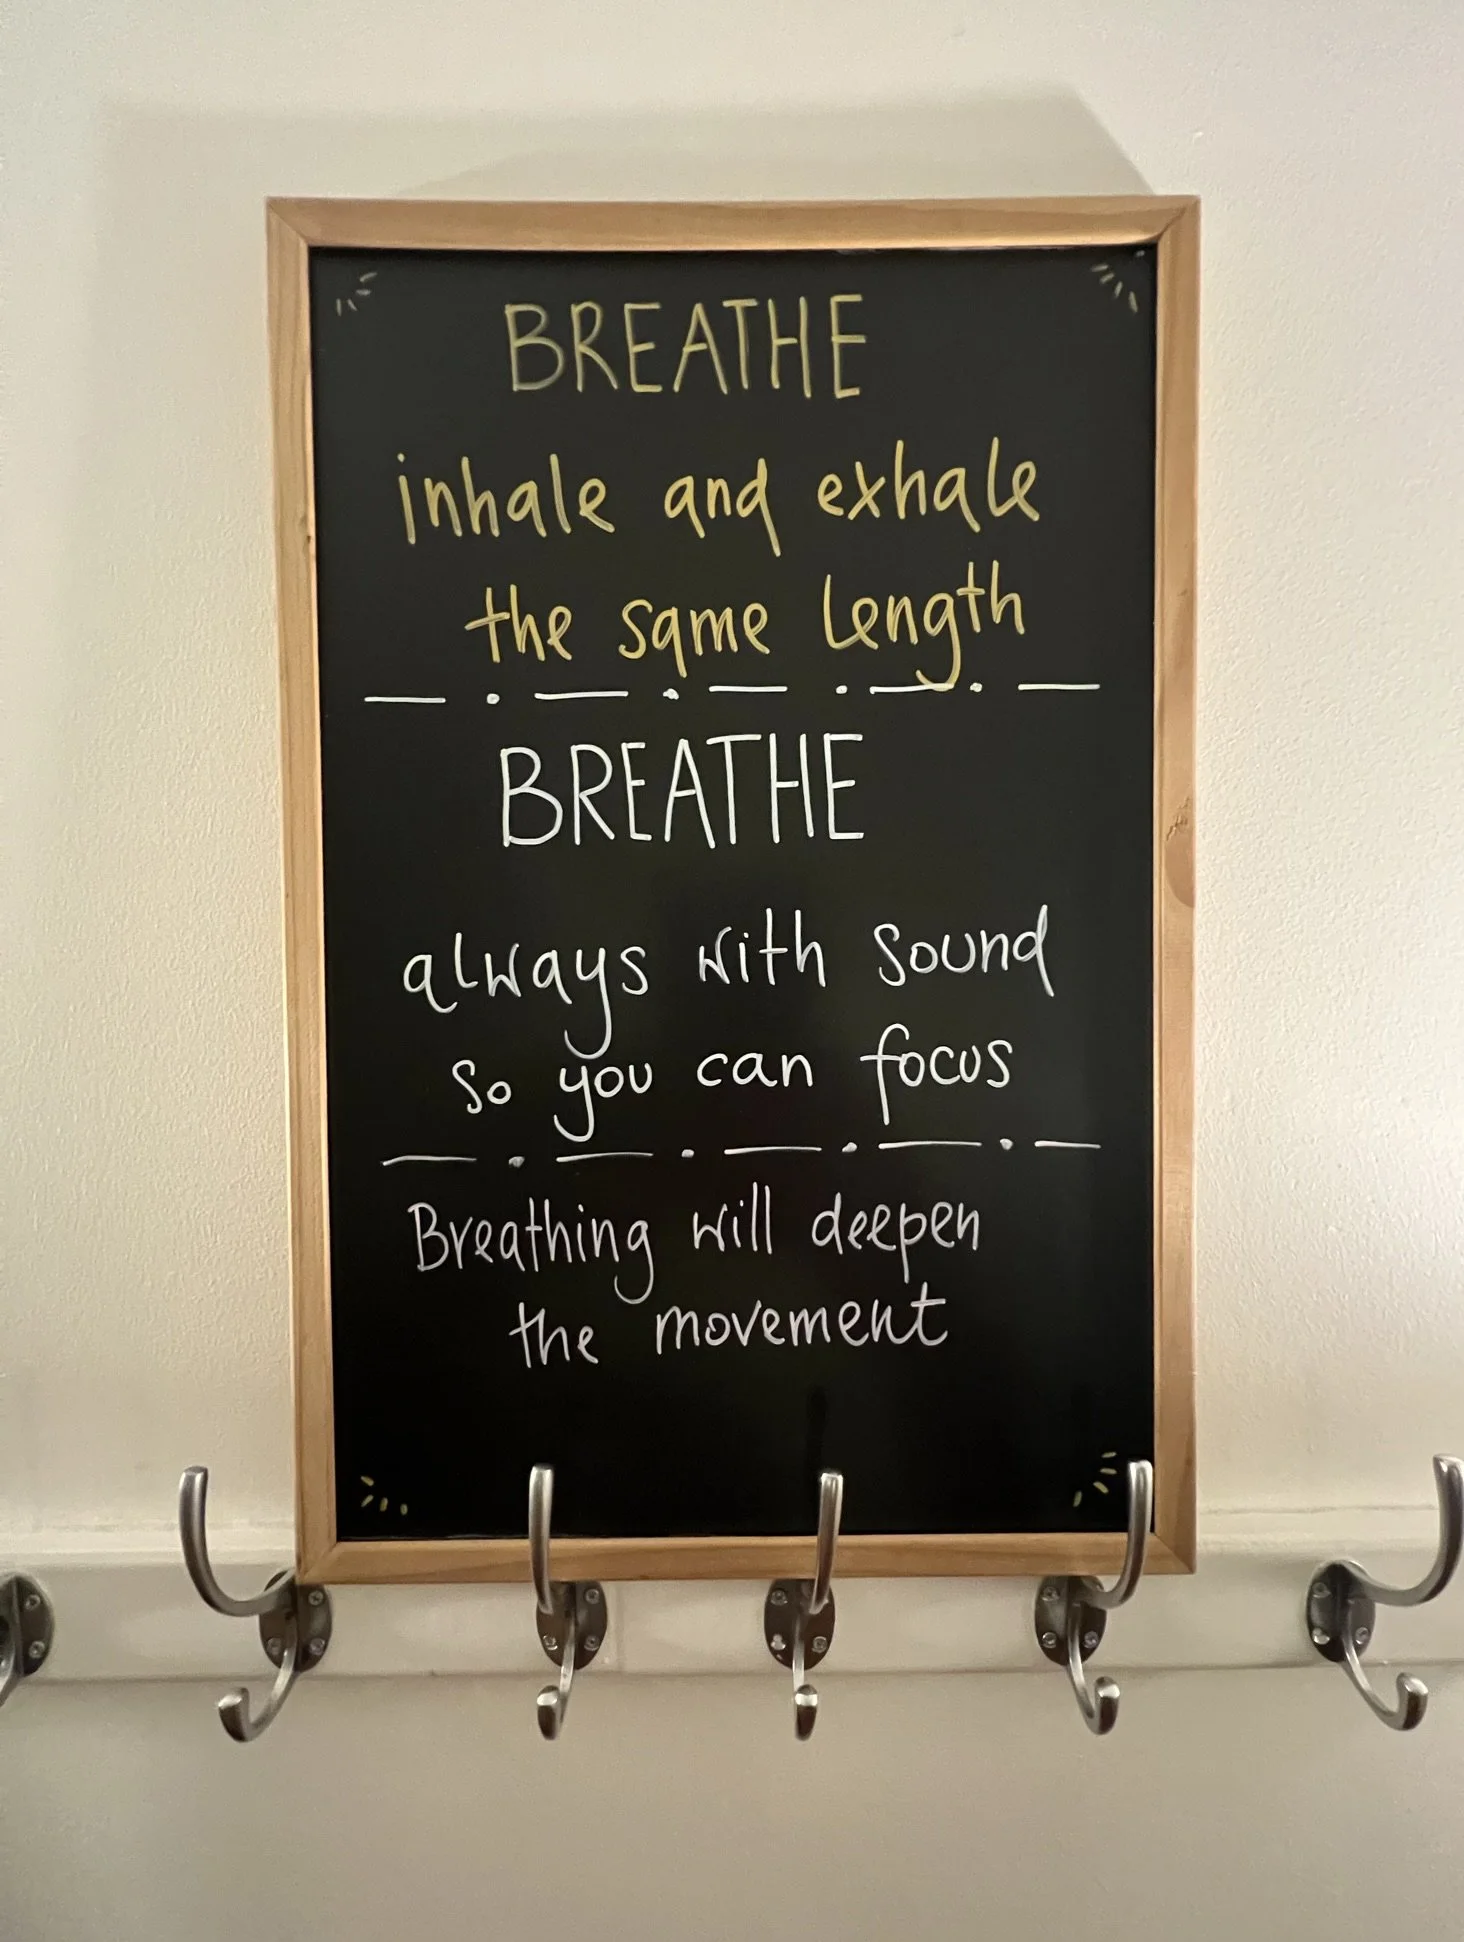 BREATHE
inhale and exhale
the same length
BREATHE
always with sound
so you can focus
Breathing will deepen
the movement